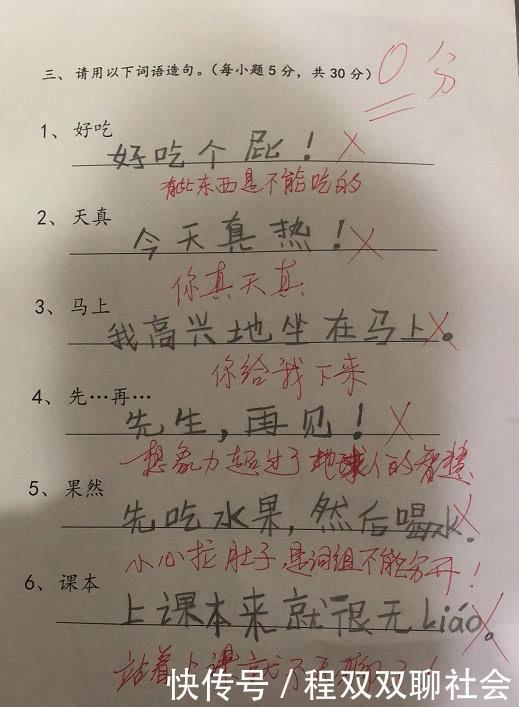 三、请用以下词语造句。(每小题5分，共30分)
0分
1、好吃
好吃个屁！
有些东西是不能吃的
2、天真
今天真热！
你真天真
3、马上
我高兴地坐在马上。
你给我下来
4、先…再…
先生，再见！
想象力超过了地球人的智慧
5、果然
先吃水果，然后喝水。
小心拉肚子，是词组不能分开！
6、课本
上课本来就很无liáo。
站着上课就不无聊了！
快传号/程双双聊社会